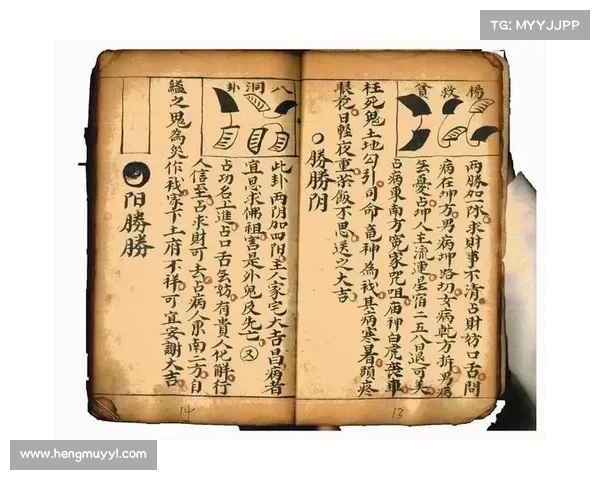 TG: MYYJJPP
楊救貧
两勝如一陰求財事不清占財訪口舌問
病在坤方男病坤路女病乾方拆男病
憂占坤人主流運星宿二五八日退可美
占病東南方冤家咒咀庙神白虎丧車
枉死鬼土地勾引司命竜神為我其病寒暑頭疼
眼花日輕夜重茶飯不思送之大吉
勝勝阴
13
八洞卦
此卦两阴加四阳主人家宅大吉昌病者
宜思求佛祖害是外鬼及先亡又
占功名上進占口舌訪有貴人化解行
人信至占求財可去占病人東南二方自
縊之鬼為災作我家下土府不祥可宜安謝大吉
阳勝勝
14
www.hengmuyyl.com